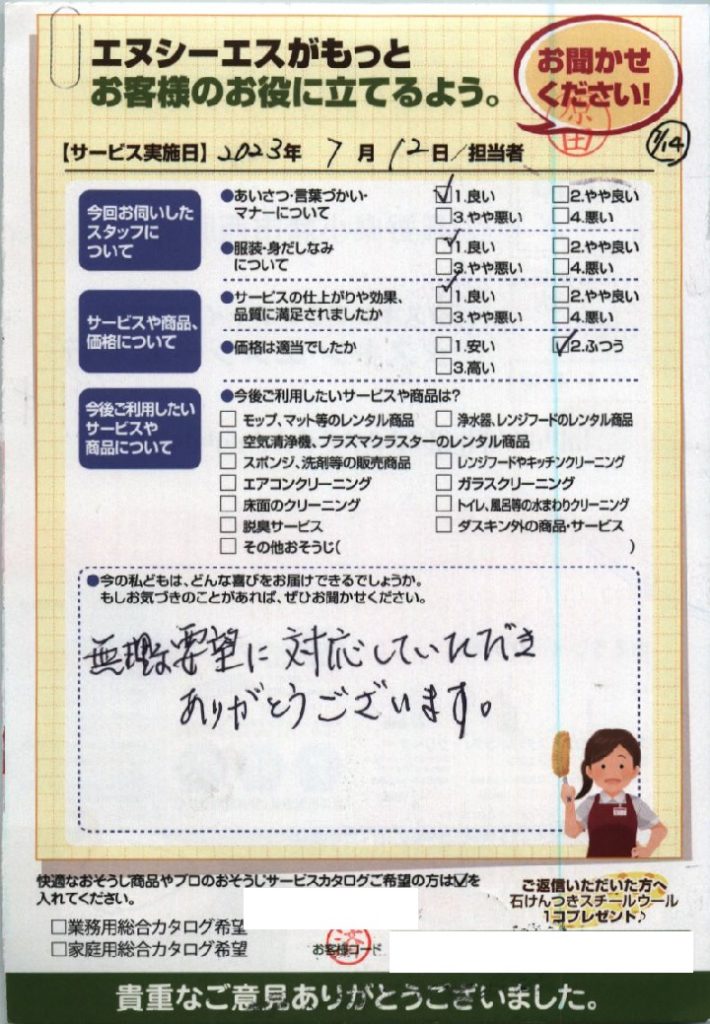 エヌシーエスがもっと
お客様のお役に立てるよう。
お聞かせ
ください!
原田
7/14
【サービス実施日】2023年 7月 12日/担当者
今回お伺いした
スタッフに
ついて
●あいさつ・言葉づかい・
マナーについて
✓1.良い □2.やや良い
□3.やや悪い □4.悪い
●服装・身だしなみ
について
✓1.良い □2.やや良い
□3.やや悪い □4.悪い
サービスや商品、
価格について
●サービスの仕上がりや効果、
品質に満足されましたか
✓1.良い □2.やや良い
□3.やや悪い □4.悪い
●価格は適当でしたか
□1.安い ✓2.ふつう
□3.高い
今後ご利用したい
サービスや
商品について
●今後ご利用したいサービスや商品は?
□ モップ、マット等のレンタル商品 □ 浄水器、レンジフードのレンタル商品
□ 空気清浄機、プラズマクラスターのレンタル商品
□ スポンジ、洗剤等の販売商品 □ レンジフードやキッチンクリーニング
□ エアコンクリーニング □ ガラスクリーニング
□ 床面のクリーニング □ トイレ、風呂等の水まわりクリーニング
□ 脱臭サービス □ ダスキン外の商品・サービス
□ その他おそうじ( )
●今の私どもは、どんな喜びをお届けできるでしょうか。
もしお気づきのことがあれば、ぜひお聞かせください。
無理な要望に対応していただき
ありがとうございます。
快適なおそうじ商品やプロのおそうじサービスカタログご希望の方は☑を
入れてください。
□業務用総合カタログ希望
□家庭用総合カタログ希望
お客様コード
ご返信いただいた方へ
石けんつきスチールウール
1コプレゼント♪
貴重なご意見ありがとうございました。